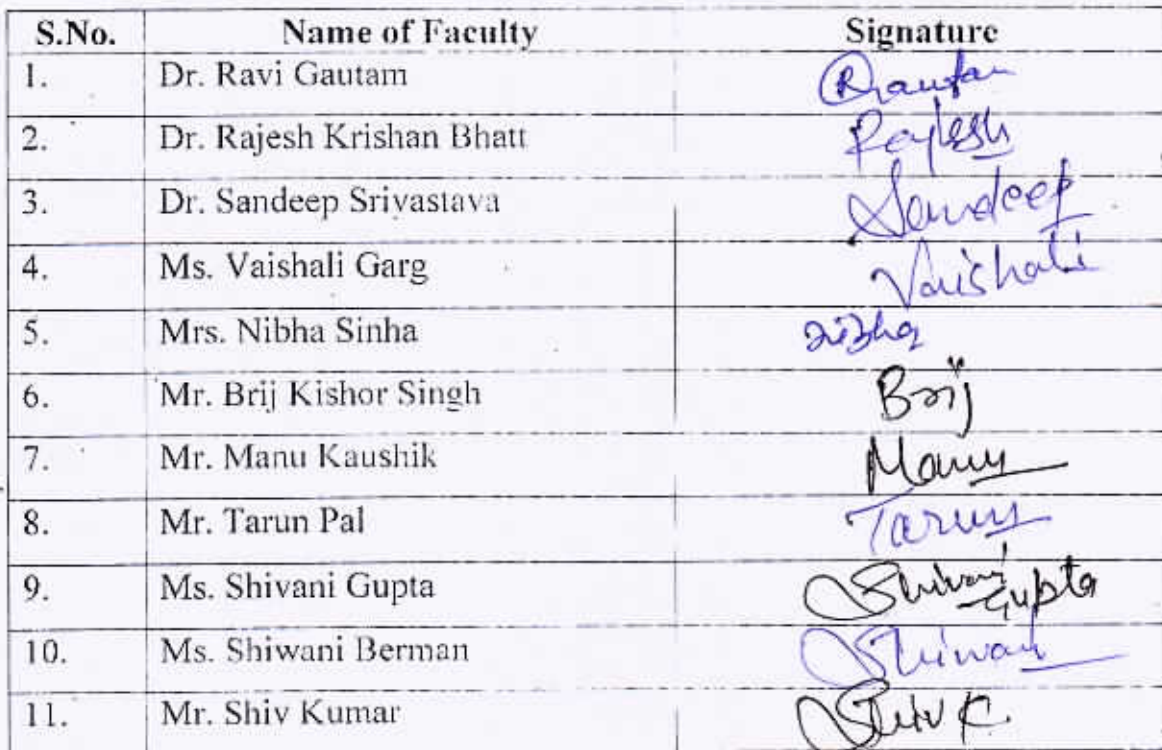 S.No. Name of Faculty Signature
1. Dr. Ravi Gautam RGautam
2. Dr. Rajesh Krishan Bhatt Rajesh
3. Dr. Sandeep Srivastava Sandeep
4. Ms. Vaishali Garg Vaishali
5. Mrs. Nibha Sinha Nibha
6. Mr. Brij Kishor Singh Brij
7. Mr. Manu Kaushik Manu
8. Mr. Tarun Pal Tarun
9. Ms. Shivani Gupta Shivani Gupta
10. Ms. Shiwani Berman Shiwani
11. Mr. Shiv Kumar Shiv K